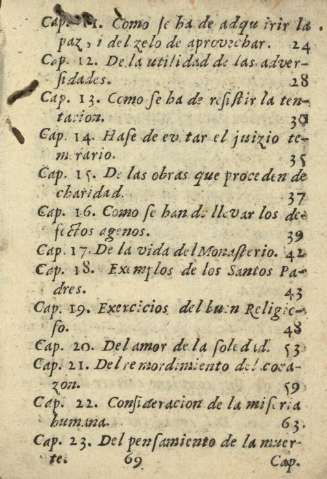 Cap. 11. Como se ha de adquirir la
paz, i del zelo de aprovechar. 24
Cap. 12. De la utilidad de las adver-
sidades. 28
Cap. 13. Como se ha de resistir la ten-
tacion. 30
Cap. 14. Hase de evitar el juizio te-
merario. 35
Cap. 15. De las obras que proceden de
charidad. 37
Cap. 16. Como se han de llevar los de-
fectos agenos. 39
Cap. 17. De la vida del Monasterio. 42
Cap. 18. Exemplos de los Santos Pa-
dres. 43
Cap. 19. Exercicios del buen Religio-
so. 48
Cap. 20. Del amor de la soledad. 53
Cap. 21. Del remordimiento del cora-
zon. 59
Cap. 22. Consideracion de la miseria
humana. 63.
Cap. 23. Del pensamiento de la muer-
te. 69 Cap.